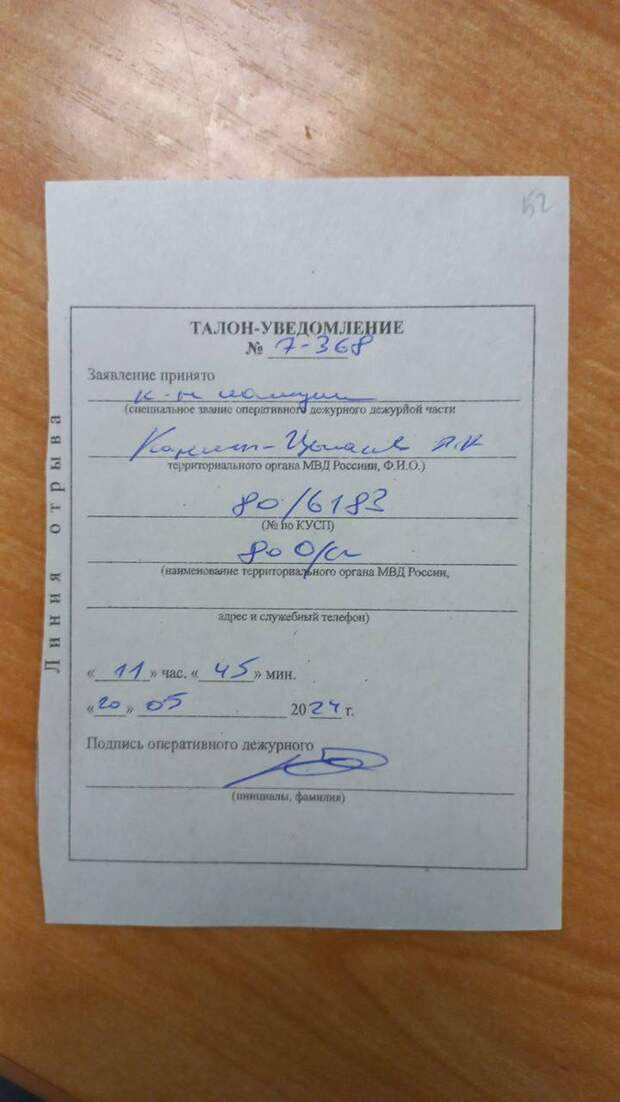 52
ТАЛОН-УВЕДОМЛЕНИЕ
№ 7-368
Заявление принято
к-н полиции
(специальное звание оперативного дежурного дежурной части
территориального органа МВД Россиии, Ф.И.О.)
80/6183
(№ по КУСП)
80 О/п
(наименование территориального органа МВД России,
адрес и служебный телефон)
« 11 » час. « 45 » мин.
« 20 » 05 2024 г.
Подпись оперативного дежурного
(инициалы, фамилия)
Линия отрыва